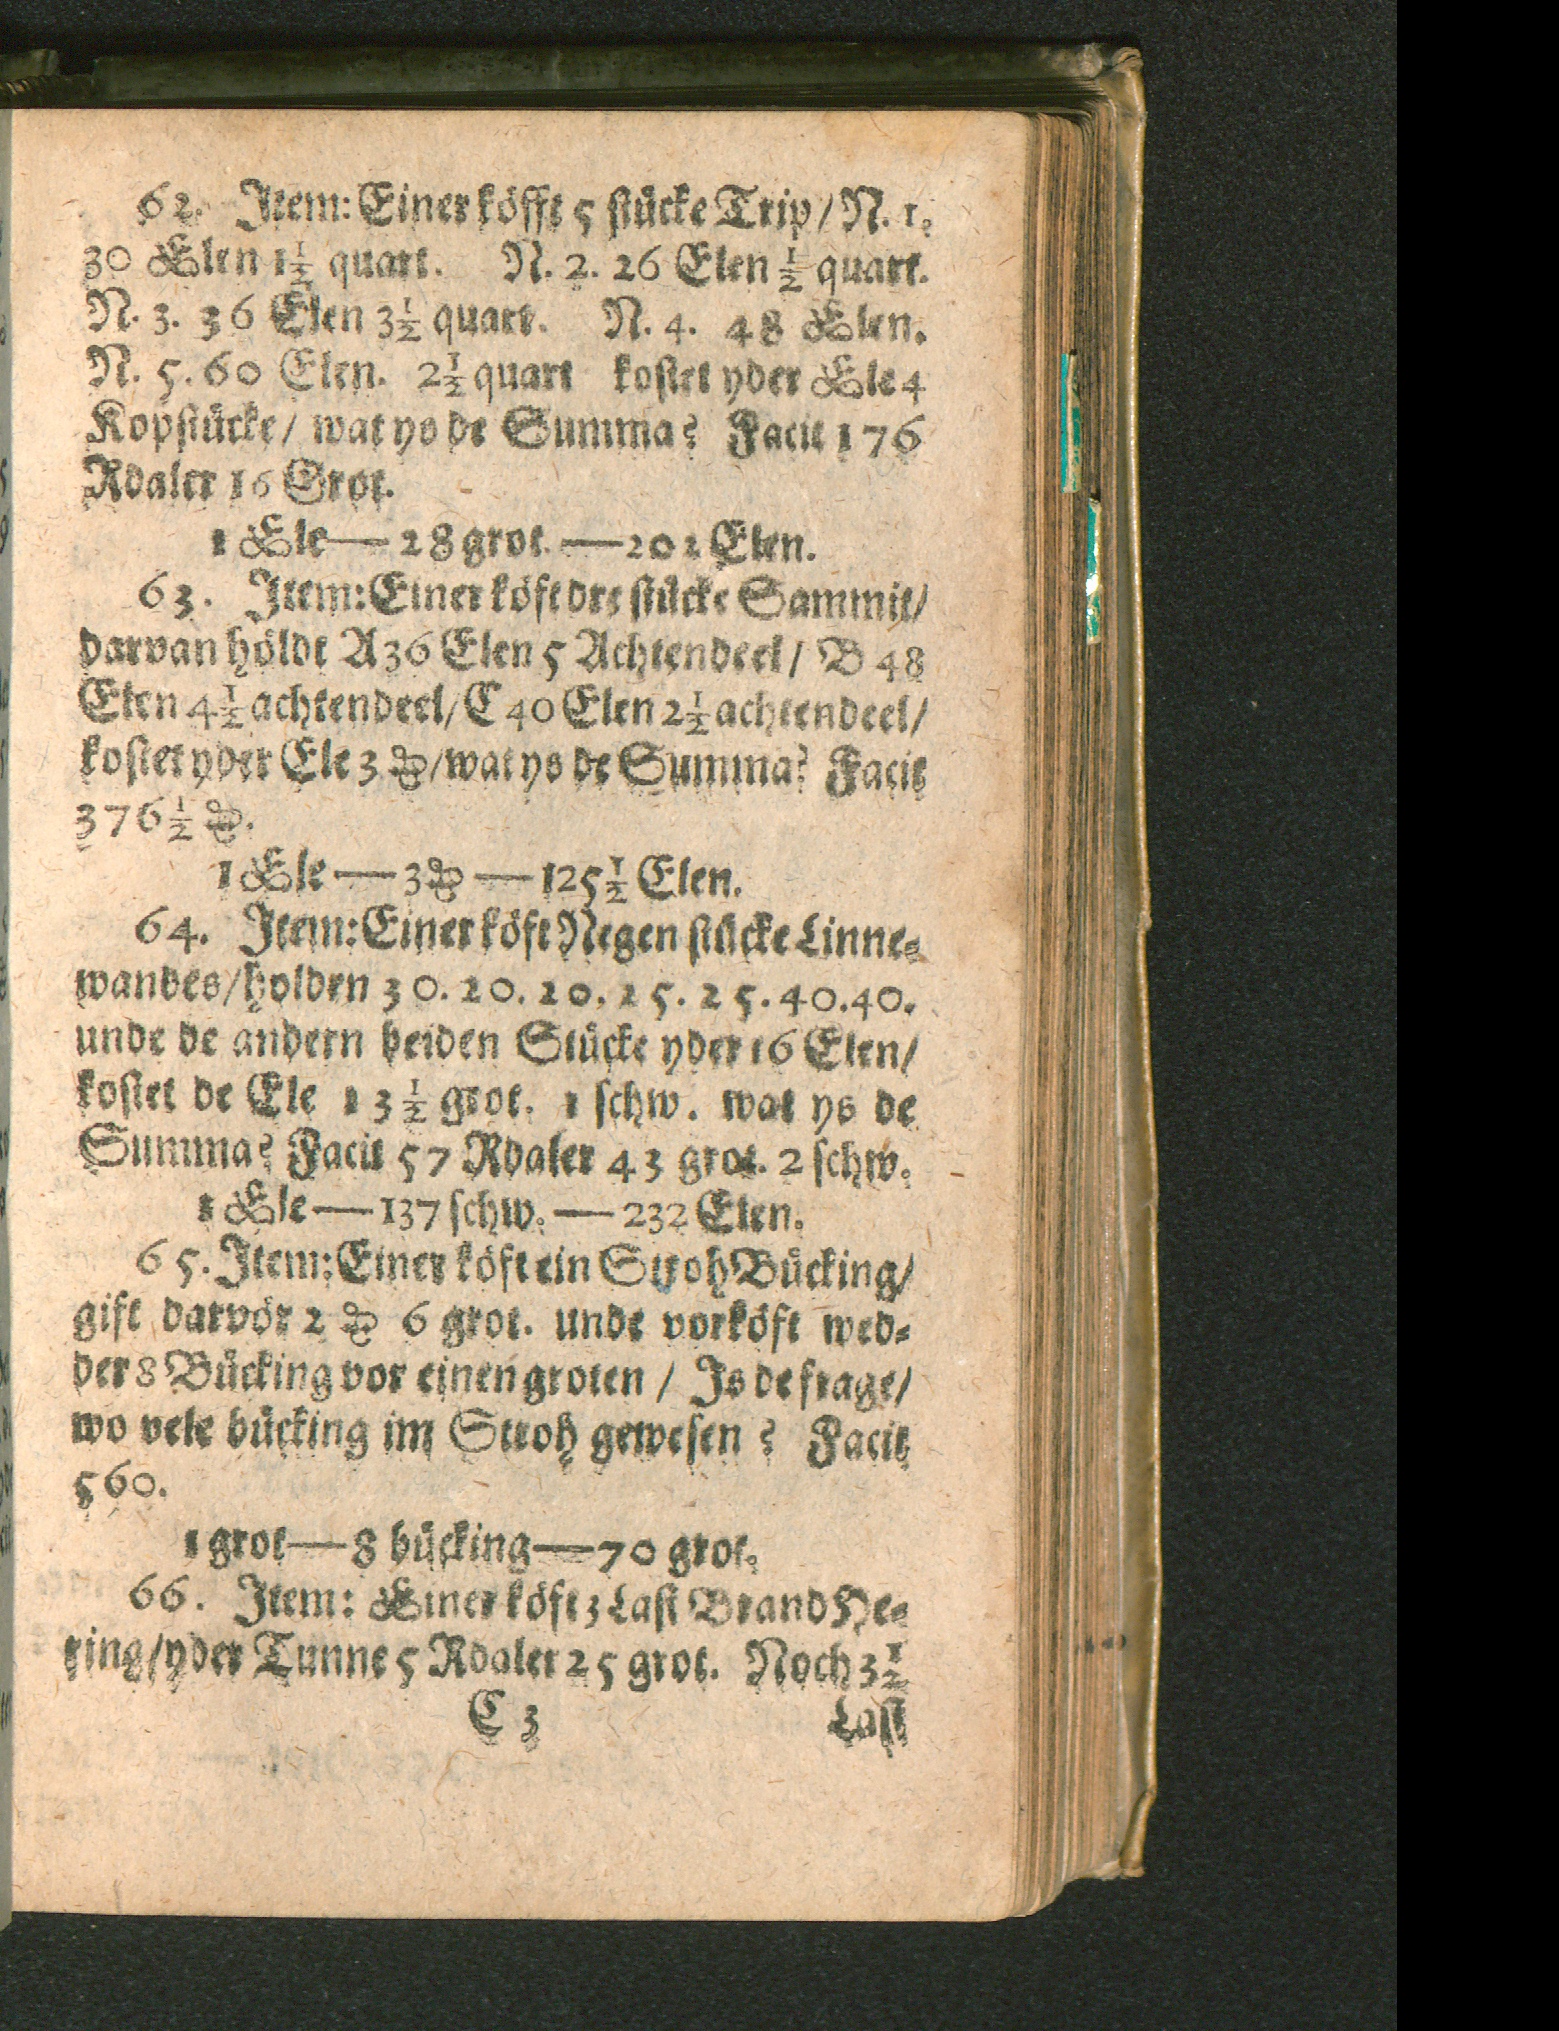 62. Item: Einer köfft 5 stücke Trip / N. 1.
30 Elen 1½ quart. N. 2. 26 Elen ½ quart.
N. 3. 36 Elen 3½ quart. N. 4. 48 Elen.
N. 5. 60 Elen. 2½ quart kostet yder Ele 4
Kopstücke / wat ys de Summa? Facit 176
Rdaler 16 Grot.
1 Ele — 28 grot. — 202 Elen.
63. Item: Einer köft dre stücke Sammit /
darvan höldt A 36 Elen 5 Achtendeel / B 48
Elen 4½ achtendeel / C 40 Elen 2½ achtendeel /
kostet yder Ele 3 / wat ys de Summa? Facit
376½
1 Ele — 3 — 125½ Elen.
64. Item: Einer köft Negen stücke Linne=
wandes / holden 30. 20. 20. 25. 25. 40. 40.
unde de andern beiden Stücke yder 16 Elen /
kostet de Ele 13½ grot. 1 schw. wat ys de
Summa? Facit 57 Rdaler 43 grot. 2 schw.
1 Ele — 137 schw. — 232 Elen.
65. Item: Einer köft ein Stroh Bücking /
gift darvör 2 6 grot. unde vorköft wed=
der 8 Bücking vor einen groten / Is de frage /
wo vele bücking im Stroh gewesen? Facit
560.
1 grot — 8 bücking — 70 grot.
66. Item: Einer köft 3 Last Brand He=
ring / yder Tunne 5 Rdaler 25 grot. Noch 3½
C 3 Last